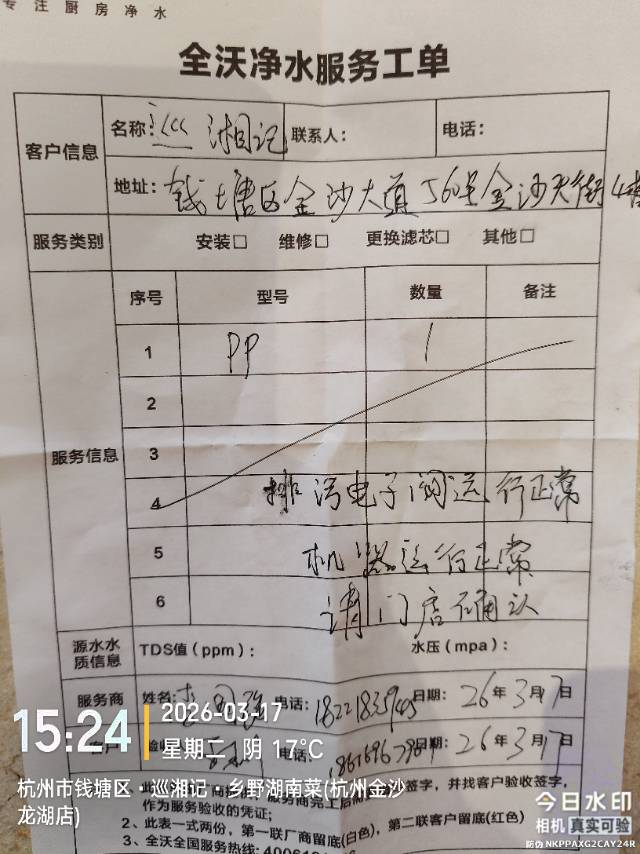 专注厨房净水
全沃净水服务工单
客户信息 名称：巡湘记 联系人： 电话：
地址：钱塘区金沙大道560号金沙天街4
服务类别 安装□ 维修□ 更换滤芯□ 其他□
服务信息 序号 型号 数量 备注
1 PP 1
2
3
4 排污电子阀运行正常
5 机器运行正常
6 请门店确认
源水水质信息 TDS值（ppm）： 水压（mpa）：
服务商 姓名： 电话： 日期：26年3月17日
电话 日期：26年3月17日
15:24
2026-03-17
星期二 阴 17℃
杭州市钱塘区·巡湘记·乡野湖南菜(杭州金沙
龙湖店)
签字，并找客户验收签字，
作为服务验收的凭证；
2、此表一式两份，第一联厂商留底(白色)，第二联客户留底(红色)
3、全沃全国服务热线：
今日水印
相机 真实可验
防伪 NKPPAXG2CAY24R